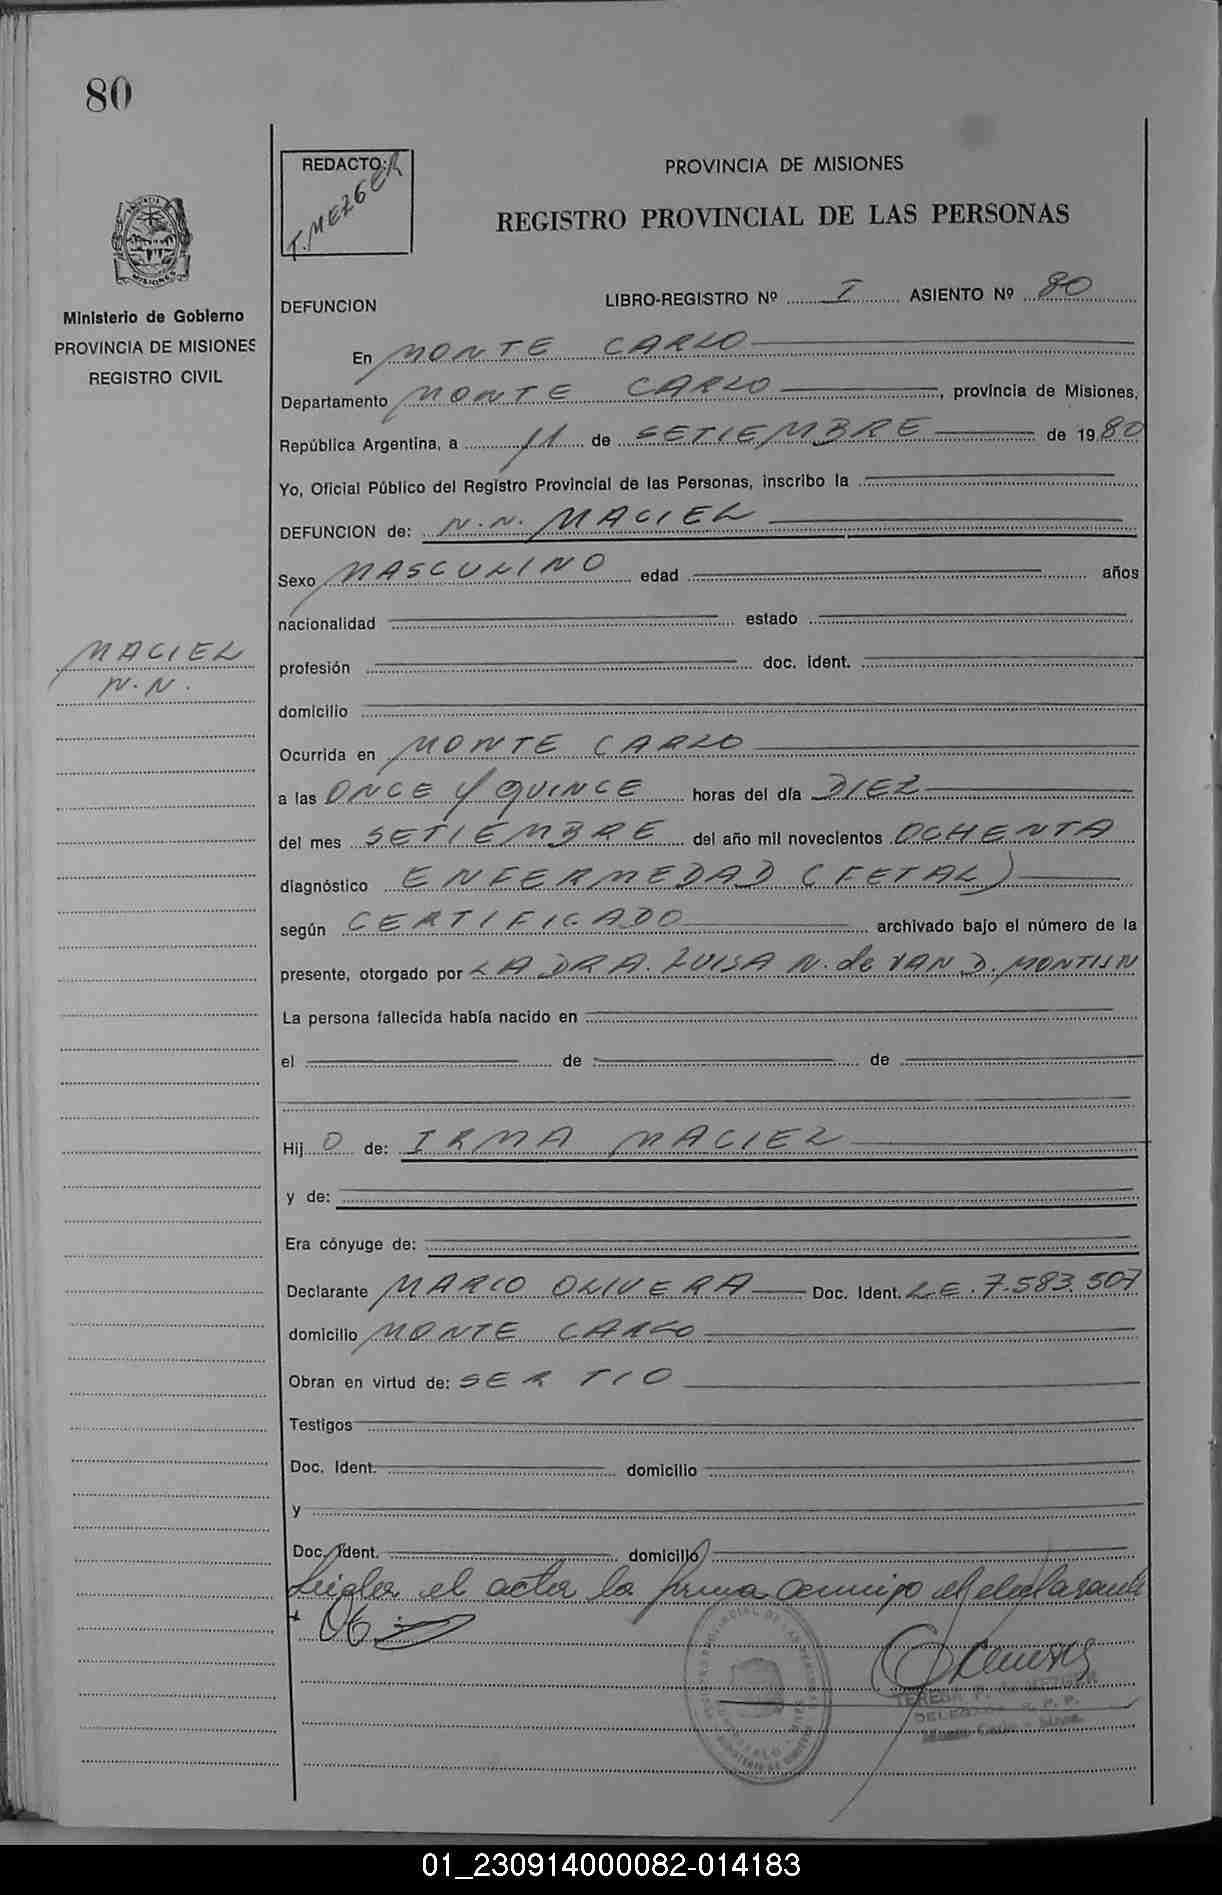 80
REDACTO:
T. MEZGER
PROVINCIA DE MISIONES
REGISTRO PROVINCIAL DE LAS PERSONAS
MISIONES
Ministerio de Gobierno
PROVINCIA DE MISIONES
REGISTRO CIVIL
DEFUNCION LIBRO-REGISTRO Nº I ASIENTO Nº 80
En MONTE CARLO
Departamento MONTE CARLO, provincia de Misiones,
República Argentina, a 11 de SETIEMBRE de 1980
Yo, Oficial Público del Registro Provincial de las Personas, inscribo la
DEFUNCION de: N.N. MACIEL
Sexo MASCULINO edad años
nacionalidad estado
MACIEL
N.N.
profesión doc. ident.
domicilio
Ocurrida en MONTE CARLO
a las ONCE Y QUINCE horas del día DIEZ
del mes SETIEMBRE del año mil novecientos OCHENTA
diagnóstico ENFERMEDAD (FETAL)
según CERTIFICADO archivado bajo el número de la
presente, otorgado por LA DRA. LUISA N. de VAN D. MONTIJN
La persona fallecida había nacido en
el de de
Hij O de: IRMA MACIEL
y de:
Era cónyuge de:
Declarante MARIO OLIVERA Doc. Ident. L.E. 7.583.507
domicilio MONTE CARLO
Obran en virtud de: SER TIO
Testigos
Doc. Ident. domicilio
y
Doc. Ident. domicilio
Leida el acta la firma conmigo el declarante
TERESA P. de MEZGER
DELEGADA R. P. P.
Monte Carlo - Mnes.
01_230914000082-014183